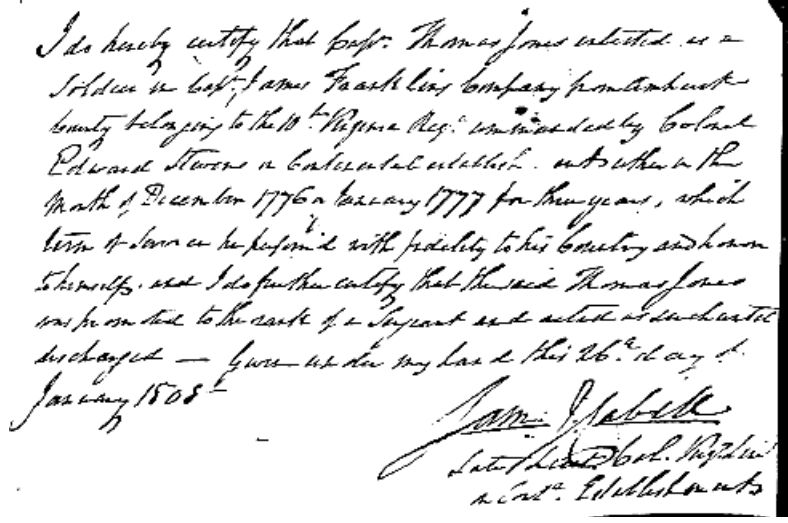 I do hereby certify that Capt. Thomas Jones enlisted as a
Soldier in Capt. James Franklins Company from Amherst
County belonging to the 10th Virginia Regt. commanded by Colonel
Edward Stevens on Continental establish. either in the
Month of December 1776 or January 1777 for three years, which
term of Service he perform'd with fidelity to his Country and honor
to himself. and I do further certify that the said Thomas Jones
was promoted to the rank of a Sergeant and acted as such until
discharged — Given under my hand this 26th day of
January 1808
Sam. J. Cabell
Late Lieut. Col.
on Contl. Establishments